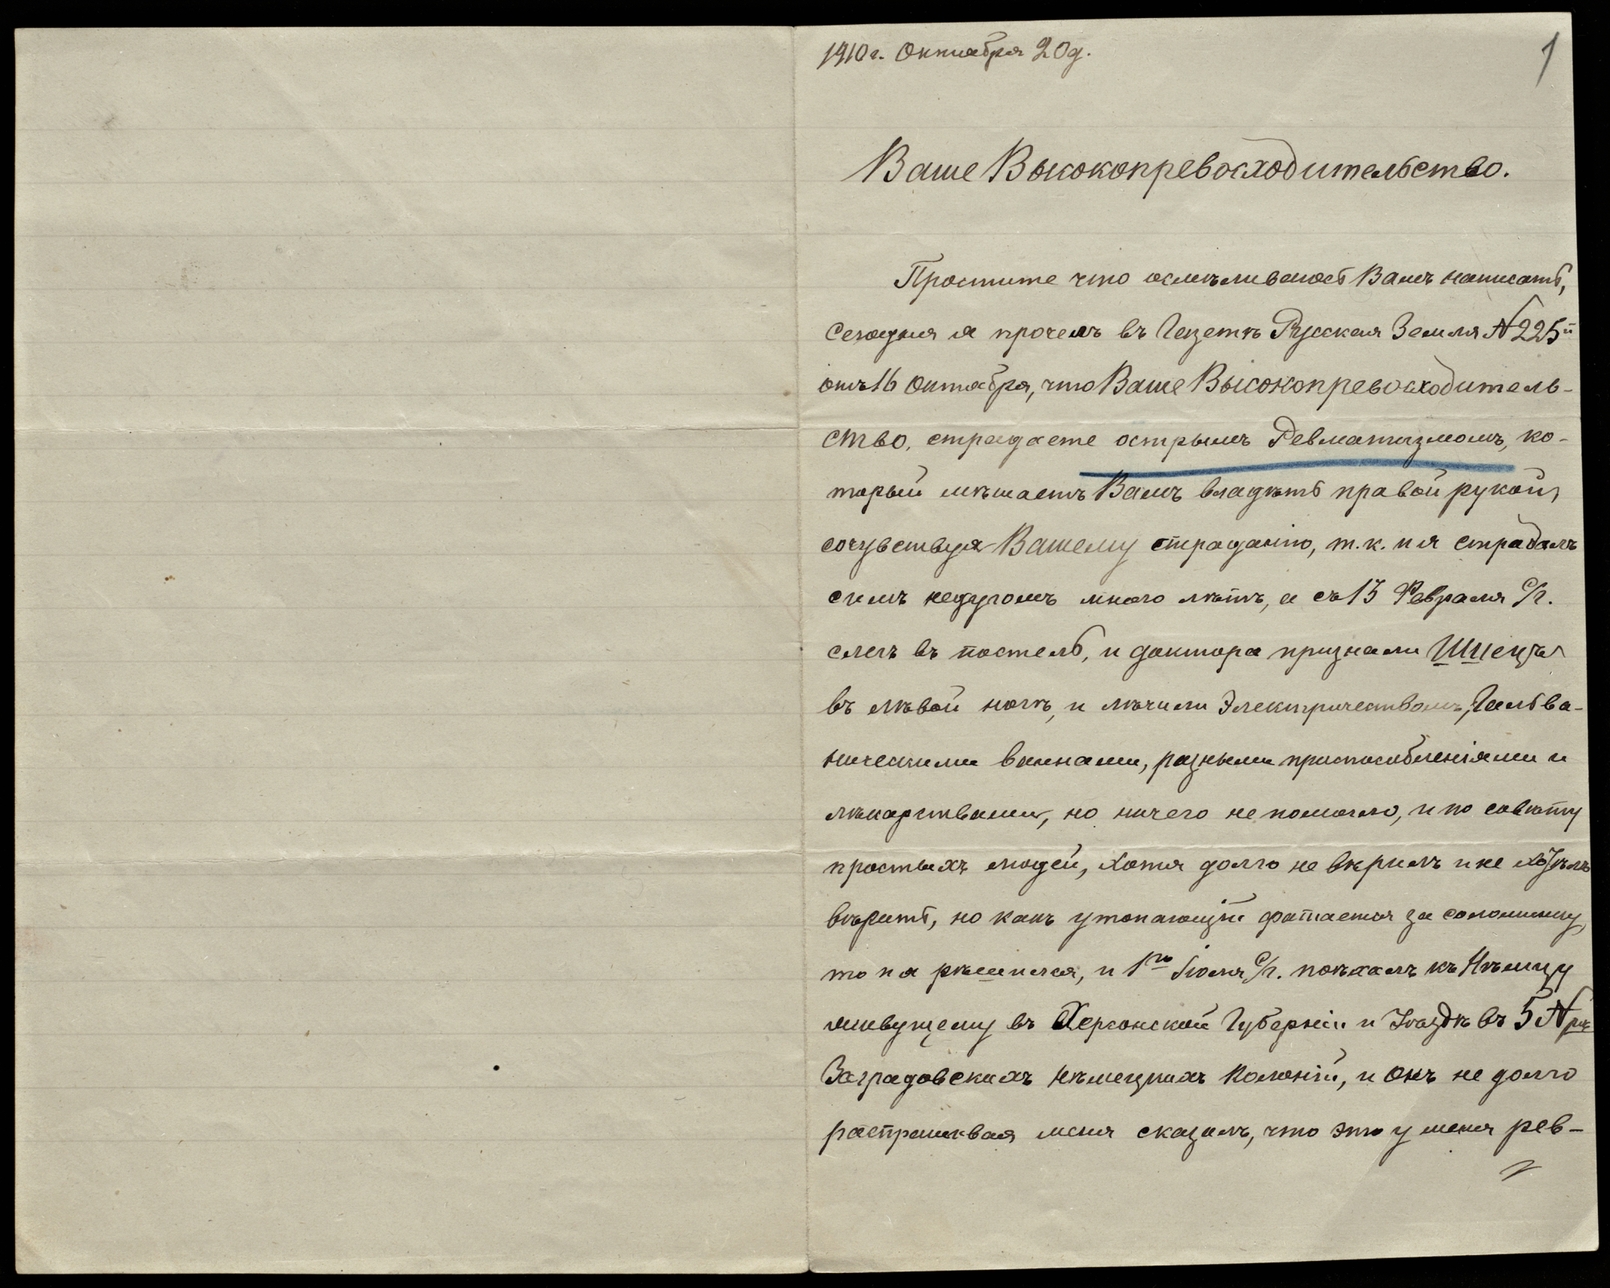 1910 г. Октября 20 д.
1
Ваше Высокопревосходительство.
Простите что осмѣливаюсь Вамъ написать,
сегодня я прочелъ въ Газетѣ Русская Земля № 225й
отъ 16 Октября, что Ваше Высокопревосходитель-
ство, страдаете острымъ Ревматизмомъ, ко-
торый мѣшаетъ Вамъ владѣть правой рукой,
сочувствуя Вашему страданію, т. к. и я страдалъ
симъ недугомъ много лѣтъ, а съ 15 Февраля с/г.
слегъ въ постель, и доктора признали Ишіасъ
въ лѣвой ногѣ, и лѣчили Электричествомъ, Гальва-
ническими ваннами, разными приспособленіями и
лѣкарствами, но ничего не помогло, и по совѣту
простыхъ людей, хотя долго не вѣрилъ и не хотѣлъ
вѣрить, но какъ утопающій фатается за соломинку,
то и я рѣшился, и 1го Іюля с/г. поѣхалъ къ Нѣмцу
живущему въ Херсонской Губерніи и Уѣздѣ въ 5 №рѣ
Заградовскихъ нѣмецкихъ Колоній, и онъ не долго
распрашивая меня сказалъ, что это у меня рев-